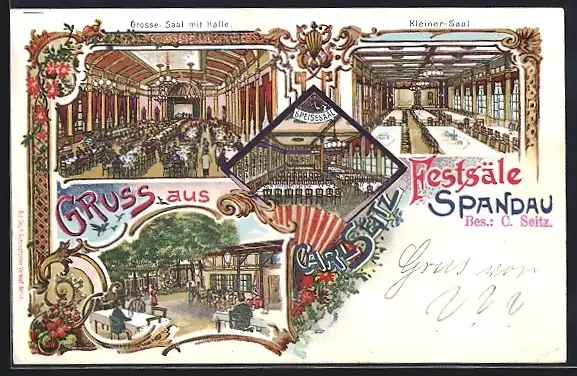 Grosse-Saal mit Halle.
Kleiner-Saal
SPEISESAAL
GRUSS aus
CARL SEITZ'
Festsäle
SPANDAU
Bes.: C. Seitz.
Gruss von